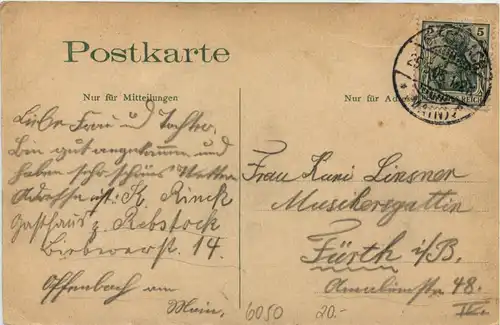 Postkarte
Nur für Mitteilungen
Nur für
Liebe Frau und Tochter,
Bin gut angekommen und
haben sehr schönes Wetter
Adresse ist: K. Rinck
Gasthaus z. Rebstock
Bieberерst. 14.
Offenbach am
Main.
5
REICH
Frau Kuni Linsner
Musikersgattin
Fürth i/B.
Amalienstr. 48.
IV.
6050 20.-